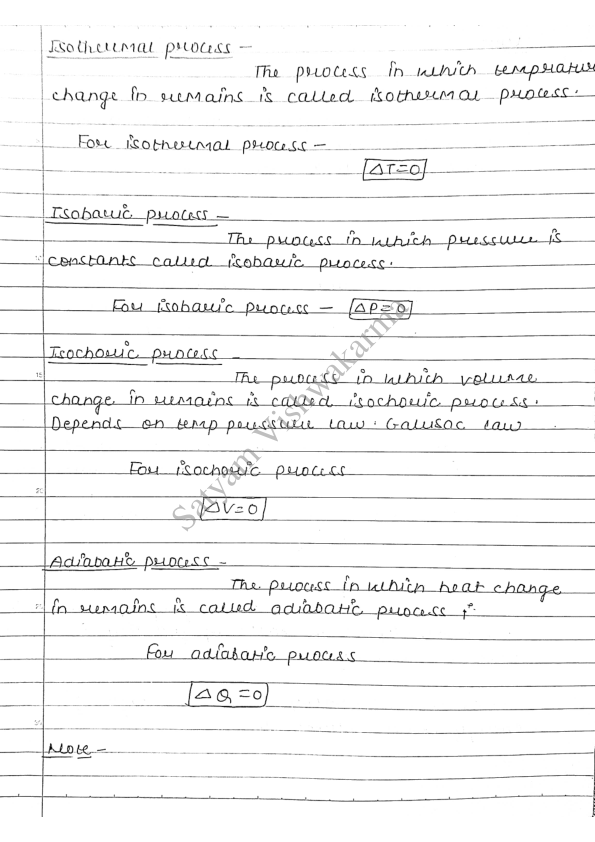 Isothermal process -
The process in which temprature
change in remains is called isothermal process.
For isothermal process -
ΔT=0
Isobaric process -
The process in which pressure is
constants called isobaric process.
For isobaric process - ΔP=0
Isochoric process -
The process in which volume
change in remains is called isochoric process.
Depends on temp pressure law. Galusac law
For isochoric process
ΔV=0
Adiabatic process -
The process in which heat change
in remains is called adiabatic process
For adiabatic process
ΔQ=0
Note -
Satyam Vishwakarma